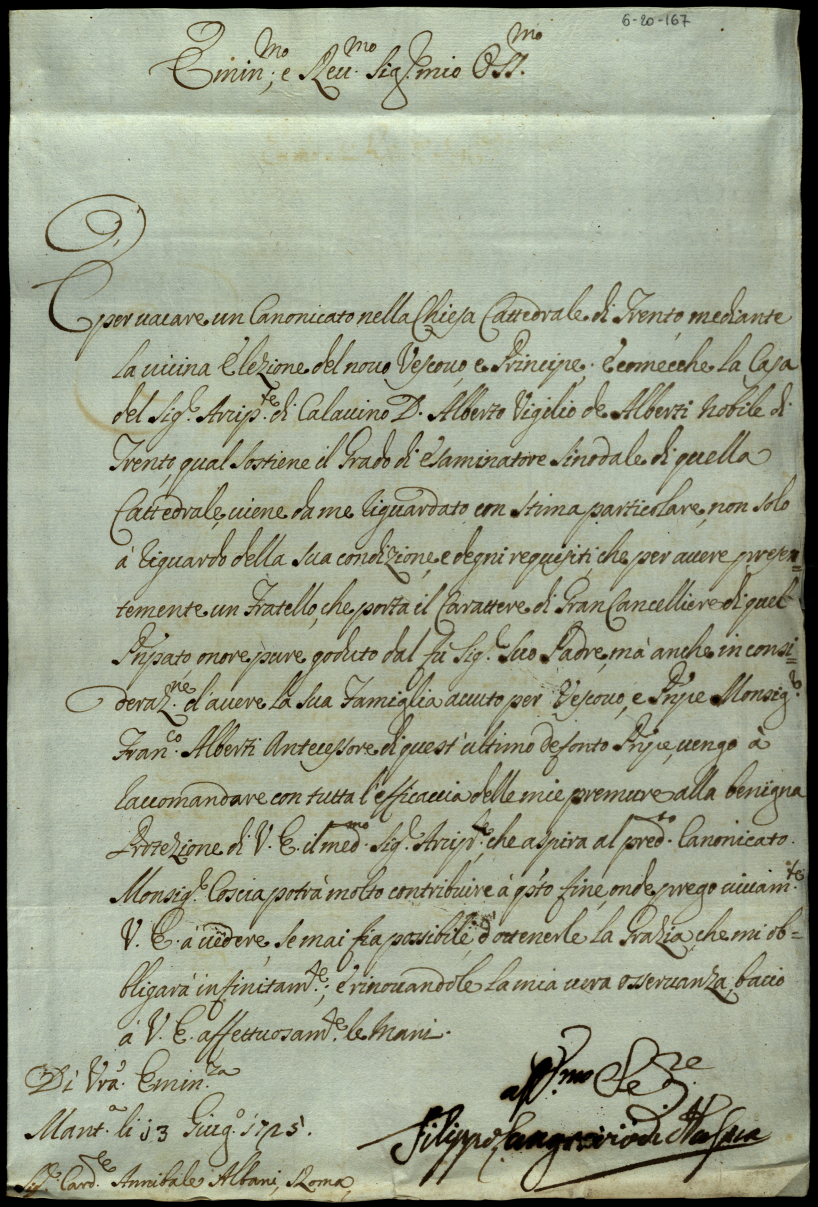 6-20-167
Emin.mo, e Rev.mo Sig.r mio Oss.mo
È per vacare un Canonicato nella Chiesa Cattedrale di Trento mediante
la vicina Elezione del novo Vescovo e Principe. E comecche la Casa
del Sig.r Arcip.te di Calavino D. Alberto Vigilio de Alberti Nobile di
Trento, qual sostiene il Grado di Esaminatore Sinodale di quella
Cattedrale, viene da me riguardato con stima particolare, non solo
à riguardo della sua condizione, e degni requisiti, che per avere presen=
temente un Fratello, che porta il Carattere di Gran Cancelliere di quel
Pnpato onore pure goduto dal fù Sig.r suo Padre, mà anche in consi=
deraz.ne d'avere la sua Famiglia avuto per Vescovo, e Pnpe Monsig.r
Fran.co Alberti Antecessore di quest'ultimo defonto Pnpe, vengo à
raccomandare con tutta l'efficaccia delle mie premure alla benigna
Protezione di V. E. il med.mo Sig.r Arcip.te, che aspira al pred.to Canonicato.
Monsig.r Coscia potrà molto contribuire à q.sto fine, onde prego vivam.te
V. E. à vedere, se mai fia possibile d'ottenerle la Grazia, che mi ob=
bligarà infinitam.te; e rinovandole la mia vera osservanza, bacio
à V. E. affettuosam.te le Mani.
Di Vrã Emin.za
Mant.a li 13 Giug.o 1725.
aff.mo Se.re
Filippo Langravio di Hassia
Sig.r Card.le Annibale Albani, Roma